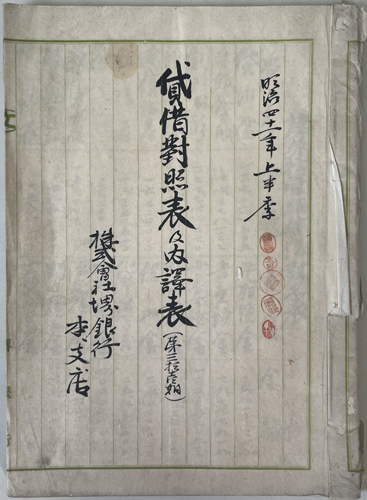 明治四十一年上半季
貸借對照表及内譯表
(第三拾壱期)
株式會社堺銀行
本支店